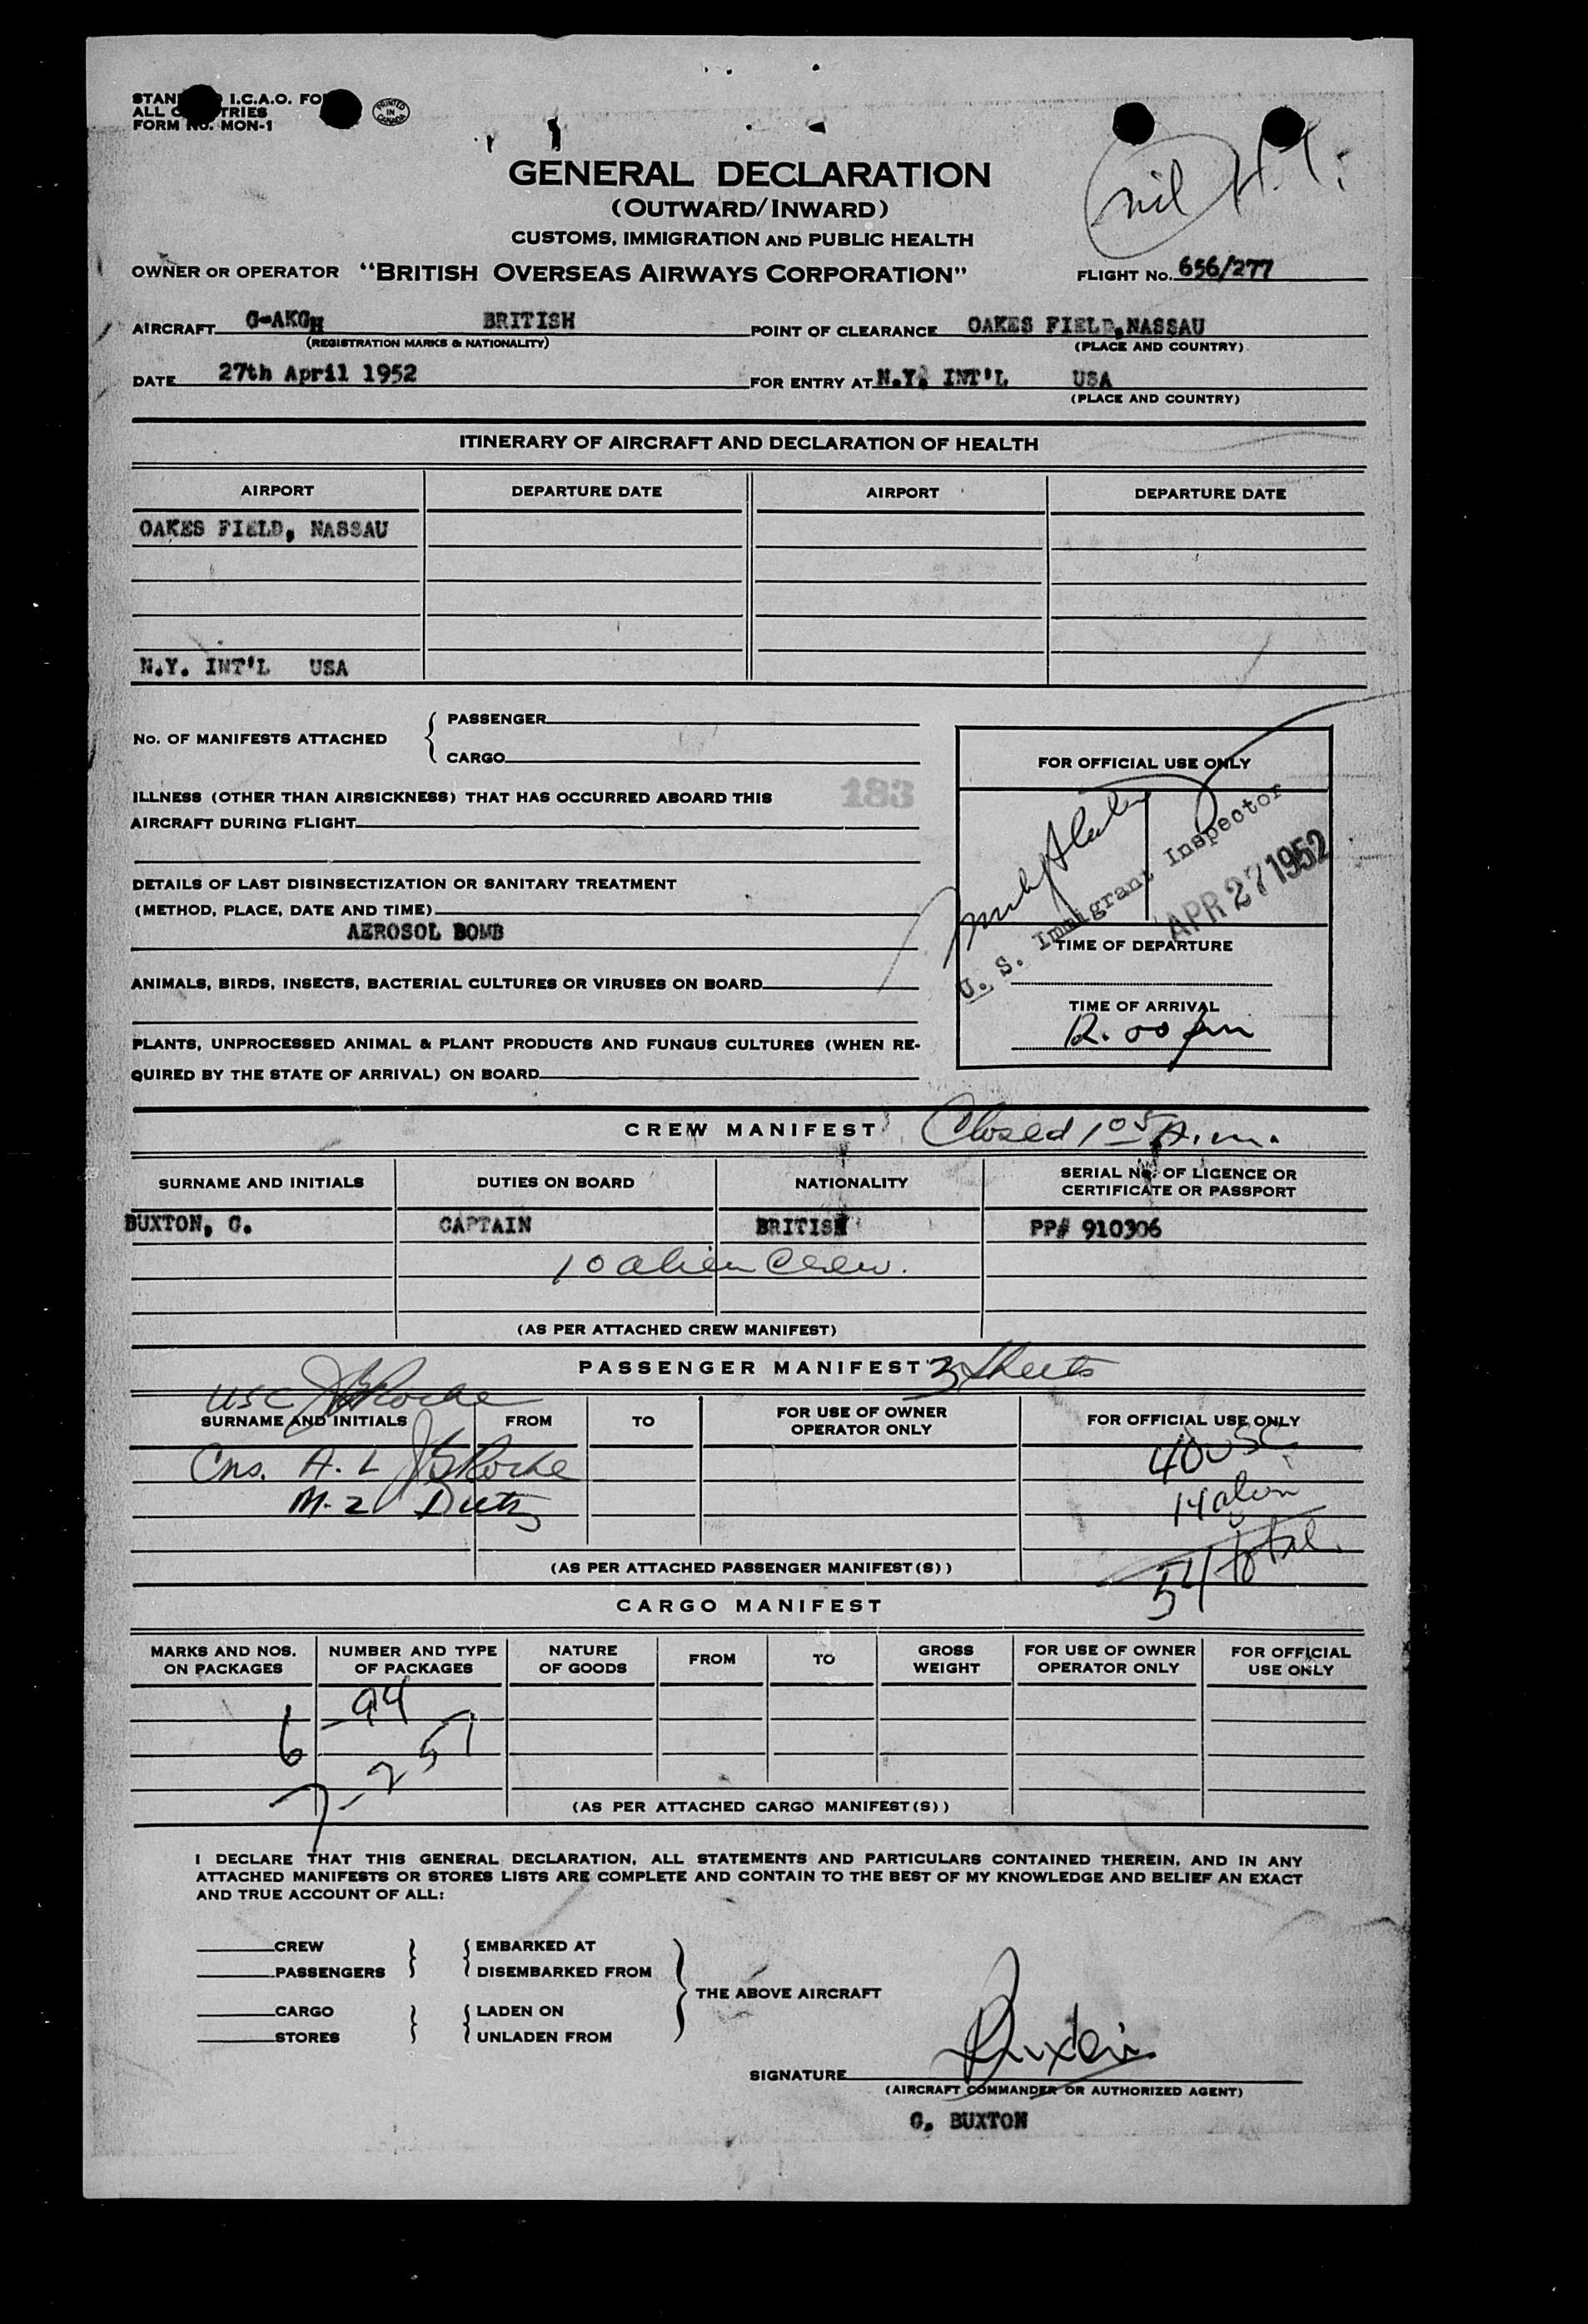 I.C.A.O.
FORM NO. MON-1
PRINTED IN CANADA
nil H.T.
GENERAL DECLARATION
(OUTWARD/INWARD)
CUSTOMS, IMMIGRATION AND PUBLIC HEALTH
OWNER OR OPERATOR "BRITISH OVERSEAS AIRWAYS CORPORATION" FLIGHT NO. 656/277
AIRCRAFT G-AKGH BRITISH POINT OF CLEARANCE OAKES FIELD, NASSAU
(REGISTRATION MARKS & NATIONALITY) (PLACE AND COUNTRY)
DATE 27th April 1952 FOR ENTRY AT N.Y. INT'L USA
(PLACE AND COUNTRY)
ITINERARY OF AIRCRAFT AND DECLARATION OF HEALTH
AIRPORT DEPARTURE DATE AIRPORT DEPARTURE DATE
OAKES FIELD, NASSAU
N.Y. INT'L USA
No. OF MANIFESTS ATTACHED { PASSENGER
CARGO
183
ILLNESS (OTHER THAN AIRSICKNESS) THAT HAS OCCURRED ABOARD THIS
AIRCRAFT DURING FLIGHT
DETAILS OF LAST DISINSECTIZATION OR SANITARY TREATMENT
(METHOD, PLACE, DATE AND TIME)
AEROSOL BOMB
ANIMALS, BIRDS, INSECTS, BACTERIAL CULTURES OR VIRUSES ON BOARD
PLANTS, UNPROCESSED ANIMAL & PLANT PRODUCTS AND FUNGUS CULTURES (WHEN RE-
QUIRED BY THE STATE OF ARRIVAL) ON BOARD
FOR OFFICIAL USE ONLY
U. S. Immigrant Inspector
APR 27 1952
TIME OF DEPARTURE
TIME OF ARRIVAL
12.00 pm
CREW MANIFEST Closed 1 05 A.m.
SURNAME AND INITIALS DUTIES ON BOARD NATIONALITY SERIAL No. OF LICENCE OR
CERTIFICATE OR PASSPORT
BUXTON, G. CAPTAIN BRITISH PP# 910306
10 alien Crew.
(AS PER ATTACHED CREW MANIFEST)
PASSENGER MANIFEST 3 sheets
USC JBRoche
SURNAME AND INITIALS FROM TO FOR USE OF OWNER
OPERATOR ONLY FOR OFFICIAL USE ONLY
40 USC
Cns. A. L JBRoche
14 alien
M-2 Dietz
54 total.
(AS PER ATTACHED PASSENGER MANIFEST(S))
CARGO MANIFEST
MARKS AND NOS.
ON PACKAGES NUMBER AND TYPE
OF PACKAGES NATURE
OF GOODS FROM TO GROSS
WEIGHT FOR USE OF OWNER
OPERATOR ONLY FOR OFFICIAL
USE ONLY
6 - 94
7 - 257
(AS PER ATTACHED CARGO MANIFEST(S))
I DECLARE THAT THIS GENERAL DECLARATION, ALL STATEMENTS AND PARTICULARS CONTAINED THEREIN, AND IN ANY
ATTACHED MANIFESTS OR STORES LISTS ARE COMPLETE AND CONTAIN TO THE BEST OF MY KNOWLEDGE AND BELIEF AN EXACT
AND TRUE ACCOUNT OF ALL:
CREW } { EMBARKED AT
PASSENGERS } { DISEMBARKED FROM
} THE ABOVE AIRCRAFT
CARGO } { LADEN ON
STORES } { UNLADEN FROM
SIGNATURE Buxton
(AIRCRAFT COMMANDER OR AUTHORIZED AGENT)
G. BUXTON